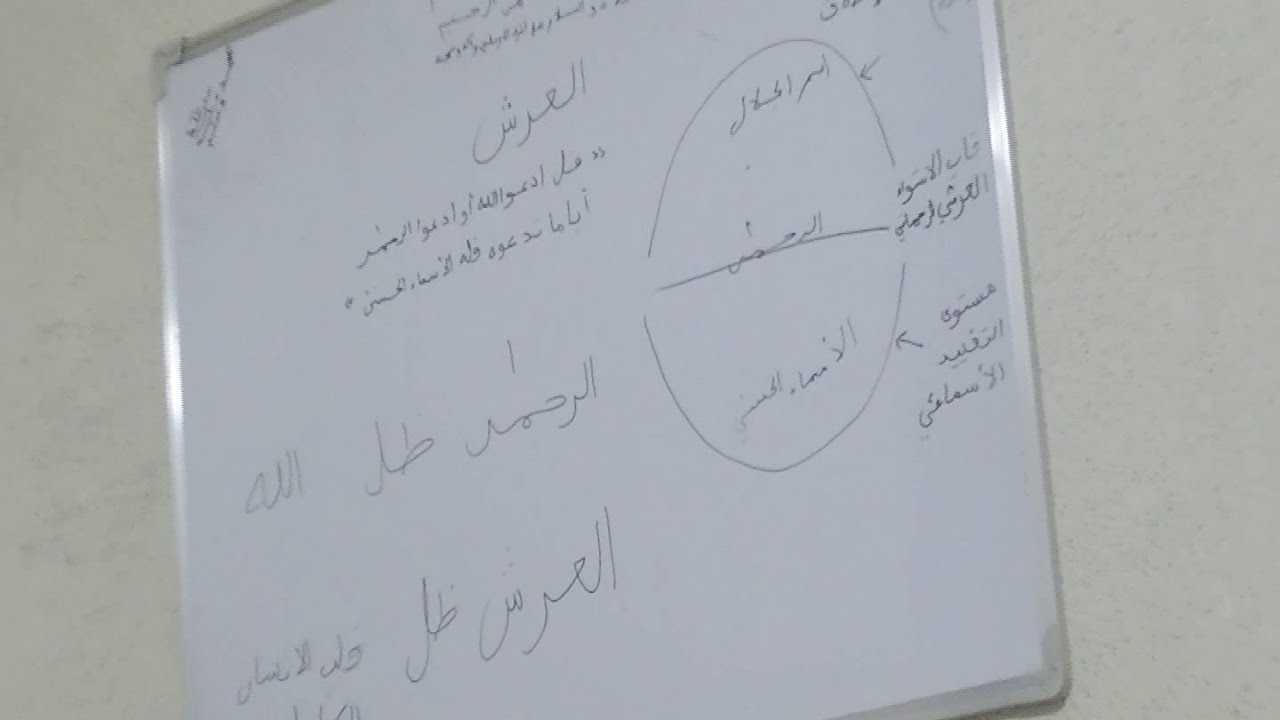 العرش
« قل ادعوا الله أو ادعوا الرحمٰن
أياما تدعوه فله الأسماء الحسنى »
الرحمٰن ظل الله
العرش ظل قلب الانسان
اسم الجلال
الرحمٰن
الأسماء الحسنى
قاب الاستواء
العرشي الرحماني
مستوى
التقييد
الأسمائي